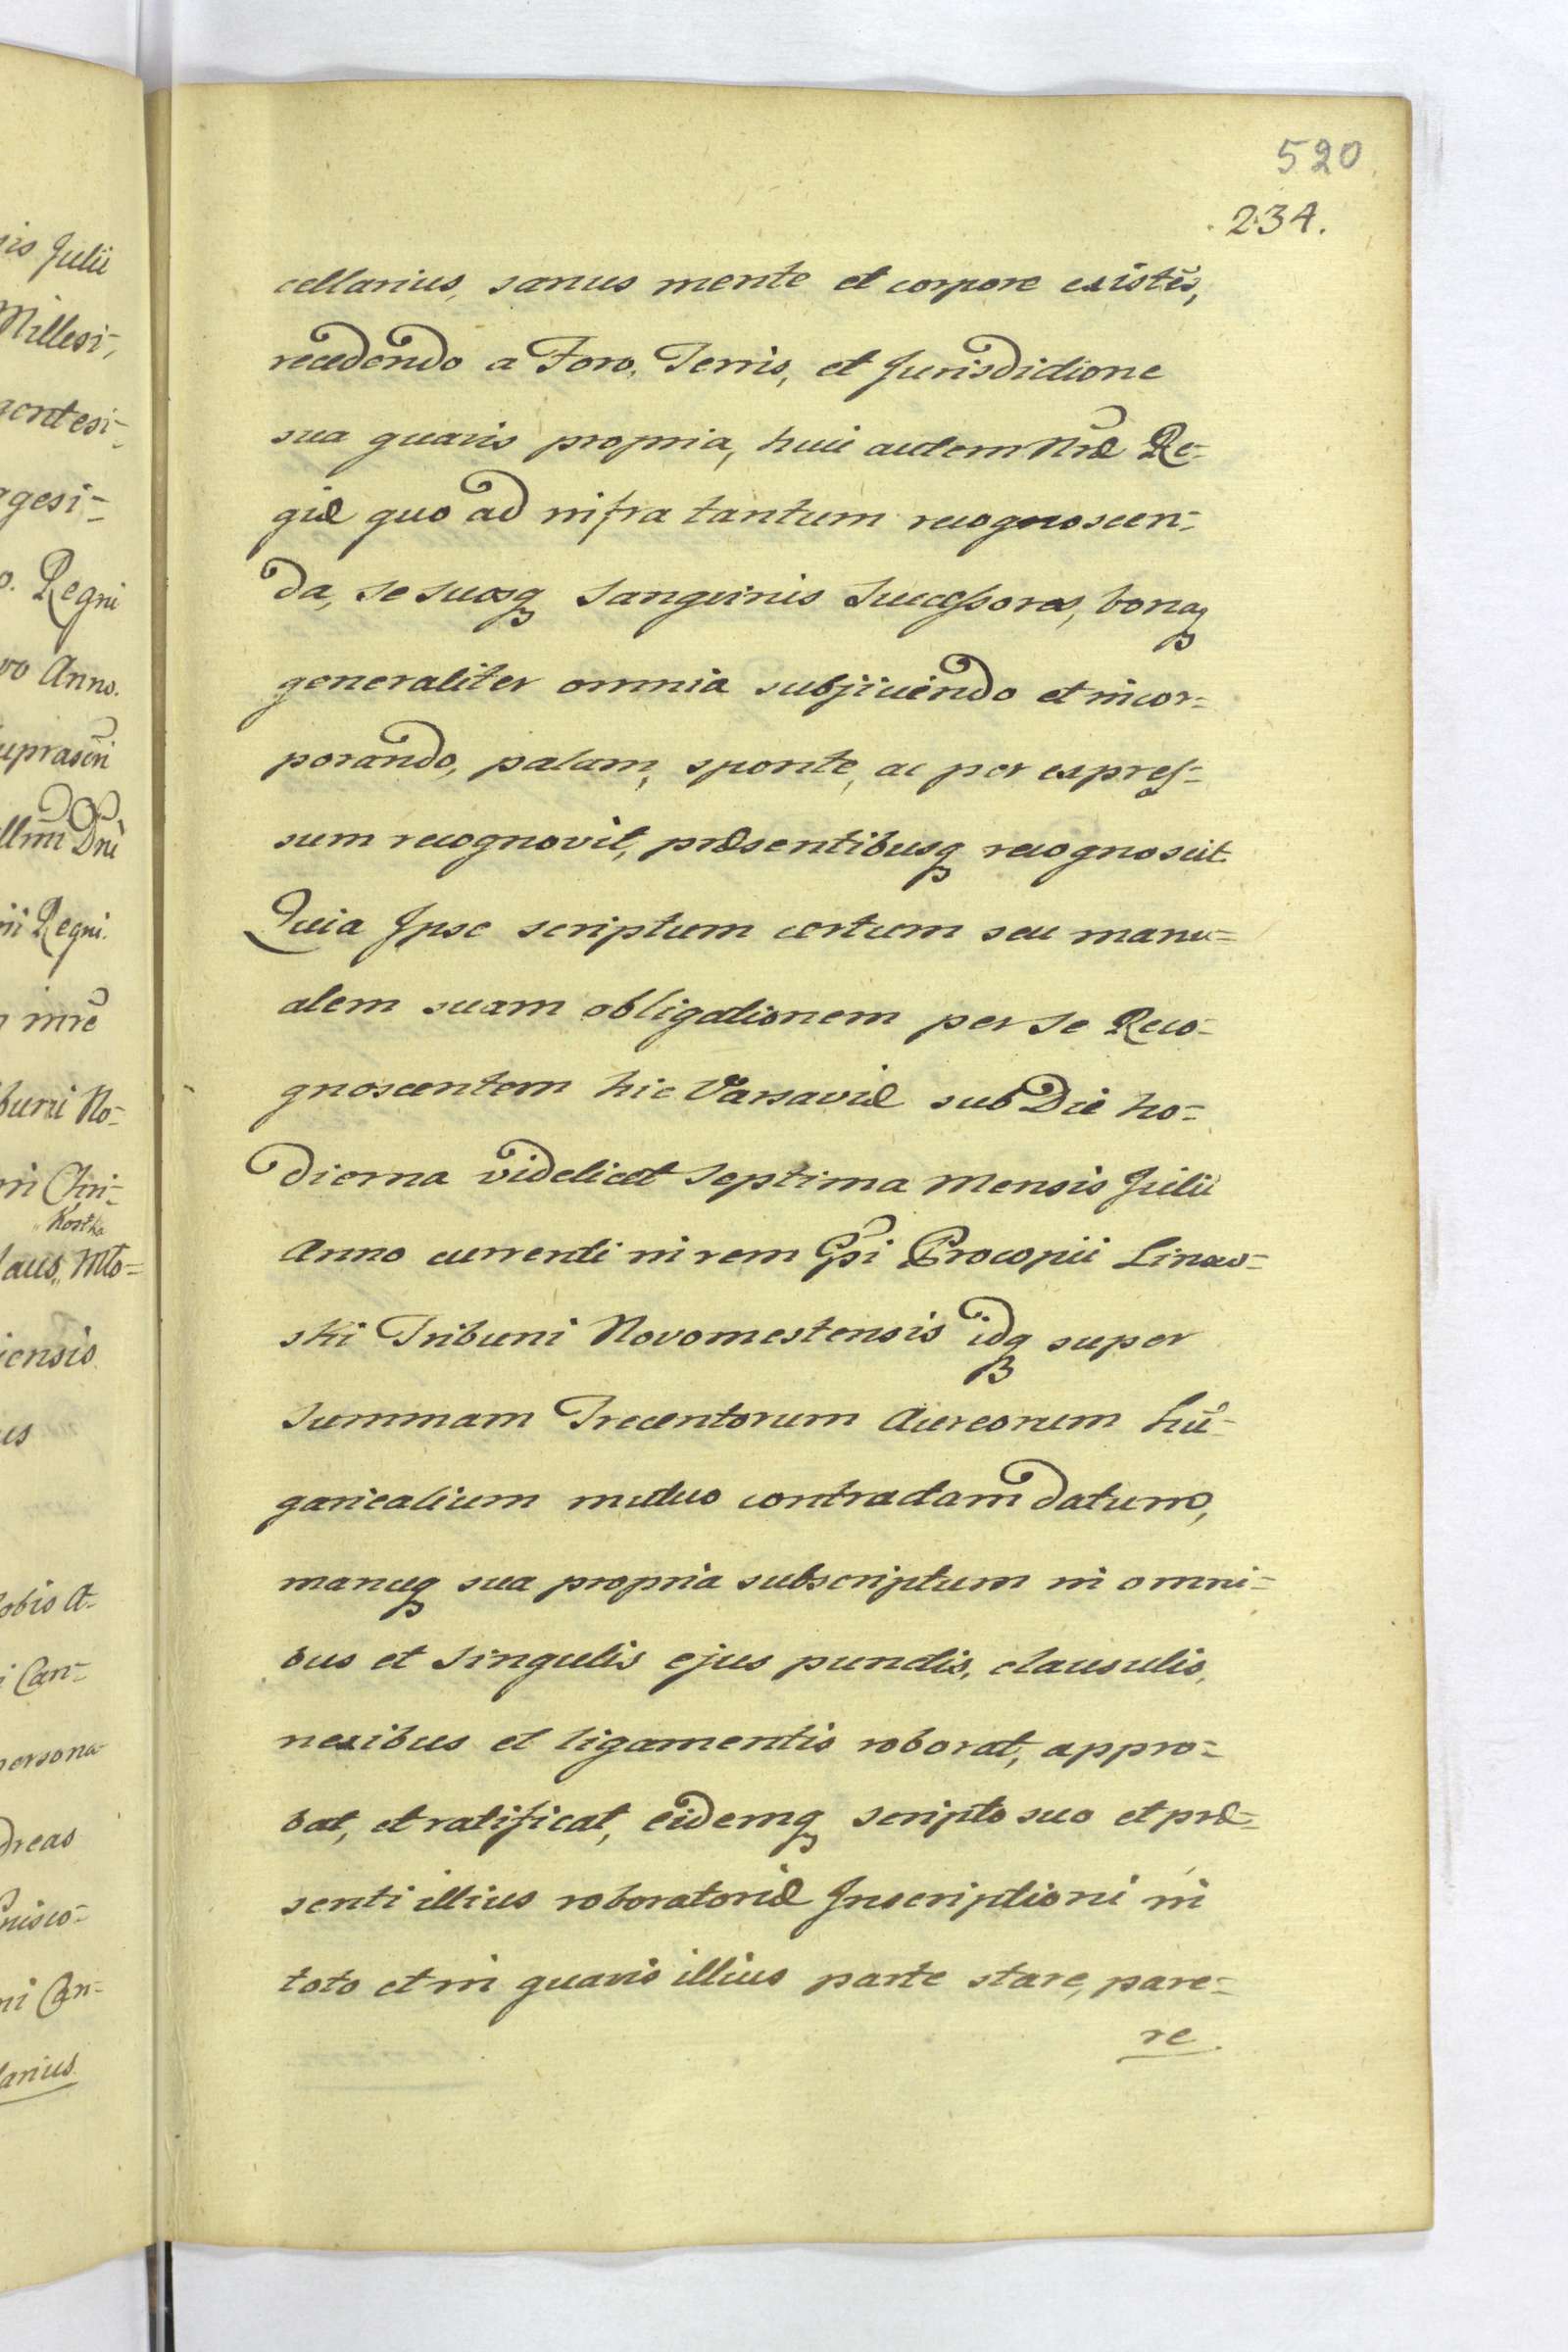 520
234.
cellarius, sanus mente et corpore existẽs,
recedendo a Foro, Terris, et Jurisdictione
sua quavis propria, huic autem Nræ Re=
giæ quo ad infra tantum recognoscen=
da, se suosq₃ Sanguinis Successores, bonaq₃
generaliter omnia subjiciendo et incor=
porando, palam, sponte, ac per expres=
sum recognovit, præsentibusq₃ recognoscit.
Quia Ipse scriptum certum seu manu=
alem suam obligationem per se Reco=
gnoscentem hic Varsaviæ sub Die ho=
dierna videlicet Septima Mensis Julii
Anno currenti in rem Gsi Procopii Linow=
ski Tribuni Novomestensis idq₃ super
Summam Trecentorum Aureorum hũ=
garicalium mutuo contractam datum,
manuq₃ sua propria subscriptum in omni=
bus et Singulis ejus punctis, clausulis,
nexibus et ligamentis roborat, appro=
bat, et ratificat, eidemq₃ scripto suo et præ=
senti illius roboratoriæ Inscriptioni in
toto et in quavis illius parte stare, pare=
re
sis Julii
Millesi=
gentesi=
agesi=
Regni
vo Anno.
suprascri
Illmi Dni
Regni.
inre
buni No=
Chri=
Kostka
laus, Mło=
iensis
us
obis A=
Can=
persona=
dreas
nisco=
ni Can=
larius